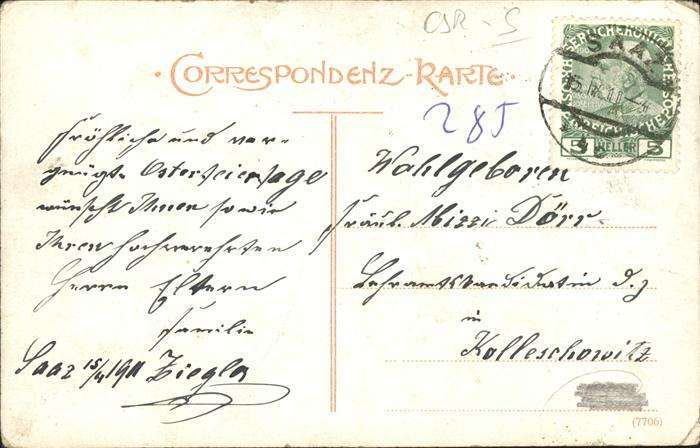 ČSR - S
SAAZ
15 IV 11
KAISERLICHEKÖNIGLICHE
5 HELLER 5
· CORRESPONDENZ-KARTE ·
285
Fröhliche und ver-
gnügte Osterfeiertage
wünscht Ihnen sowie
Ihren hochverehrten
Herrn Eltern
Familie
Saaz 15/4 1911 Ziegler
Wohlgeboren
Fräul. Mizzi Dörr
Lehramtskandidatin d. z
in
Kolleschowitz
(7706)